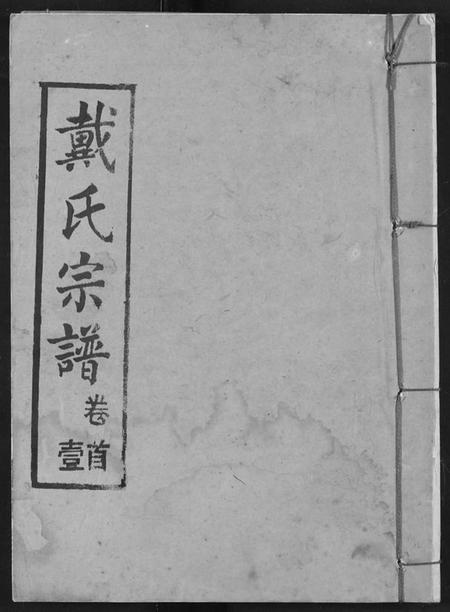 戴氏宗譜
卷
首壹